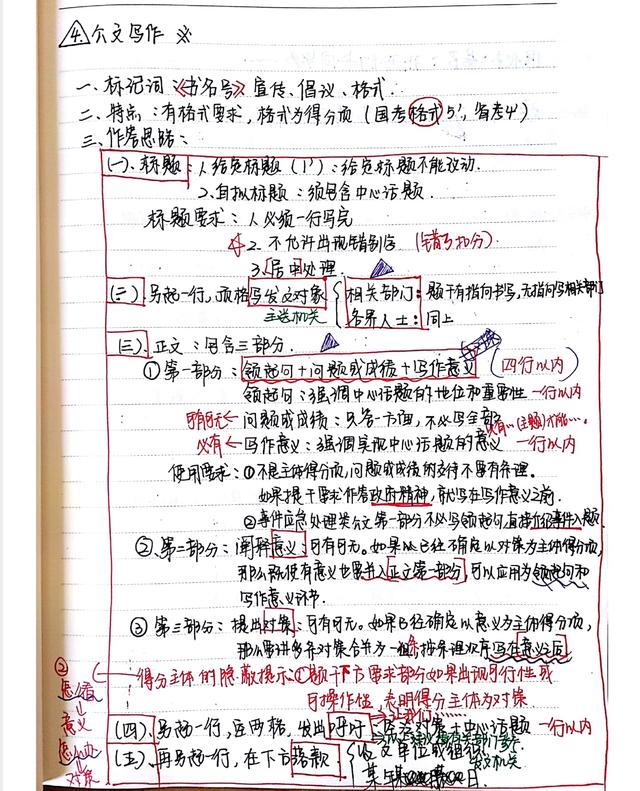 4. 公文写作 ※
一、标记词:《书名号》宣传、倡议、格式.
二、特点:有格式要求,格式为得分项(国考格式5',省考4')
三、作答思路:
(一)、标题:1.给定标题(1'):给定标题不能改动.
2.自拟标题:须包含中心话题.
标题要求:1.必须一行写完
2.不允许出现错别字(错了扣分).
3.居中处理.
(二)、另起一行,顶格写发文对象 相关部门:题干有指向书写,无指向写相关部门
主送机关 各界人士:同上
(三)、正文:包含三部分.
①第一部分:领起句+问题或成绩+写作意义 (四行以内)
领起句:强调中心话题的地位和重要性 一行以内
可有可无← 问题或成绩:只答一方面,不必写全部
必有← 写作意义:强调实现中心话题的意义 一行以内
只有…(主题)才能….
使用要求:①不是主体得分项,问题或成绩的交待不要有条理。
如果提干要求作答政府精神,就写在写作意义之前.
②事件应急处理类公文第一部分不必写领起句,直接介绍事件入题.
②、第二部分:阐释意义:可有可无。如果以已经确定以对策为主体得分项,
那么既使有意义也要并入正文第一部分,可以应用为领起句和
写作意义环节.
③ 第三部分:提出对策:可有可无。如果已经确定以意义为主体得分项,
那么要讲多条对策合并为一组条按条理次序写在意义后
得分主体的隐蔽提示:①题干下方要求部分如果出现可行性或
可操作性,表明得分主体为对策.
② 怎么看
↓
意义
怎么办
↓
对策
(四)、另起一行,空两格,发出呼吁 对策+中心话题 一行以内
让我们……
(五)、再另起一行,在右下方落款 发文单位或组织
发文机关
某年某月某日.